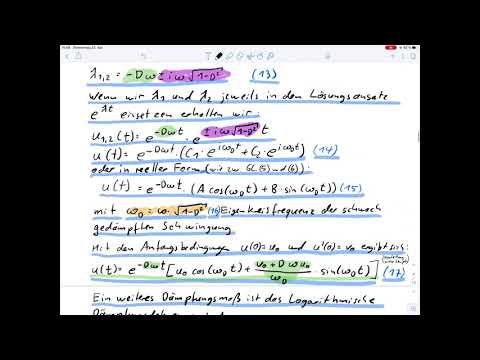 λ₁,₂ = -Dω ± iω√(1-D²) (13)
Wenn wir λ₁ und λ₂ jeweils in den Lösungsansatz
e^λt einsetzen erhalten wir:
u₁,₂(t) = e^-Dωt · e^± iω√(1-D²) t
u(t) = e^-Dωt · [C₁ · e^iω_Dt + C₂ · e^iω_Dt] (14)
oder in reeller Form (wie zw. Gl. (5) und (6)):
u(t) = e^-Dωt · (A cos(ω_Dt) + B · sin(ω_Dt)) (15)
mit ω_D = ω · √(1-D²) (16) Eigenkreisfrequenz der schwach
gedämpften Schwingung
Mit den Anfangsbedingungen u(0)=u₀ und u'(0)=v₀ ergibt sich:
u(t) = e^-Dωt [u₀ cos(ω_Dt) + (v₀ + Dωu₀)/ω_D · sin(ω_Dt)] (17)
Ein weiteres Dämpfungsmaß ist das Logarithmische